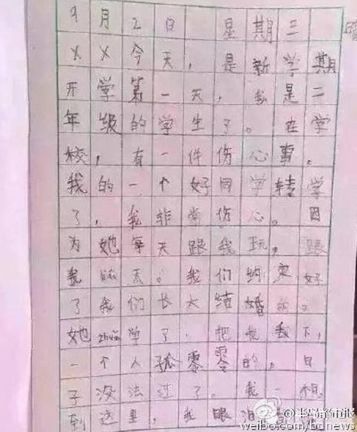 9月2日 星期三
XX今天,是新学期
开学第一天,我是二
年级的学生了。在学
校,有一件伤心事。
我的一个好同学转学
了,我非常伤心。因
为她每天跟我玩,跟
我聊天。我们约定好
了我们长大结婚的。
她zhuan学了,把我丢下,
一个人孤零零的,日
子没法过了。我一想
到这里,我眼泪
weibo.com/bqnews